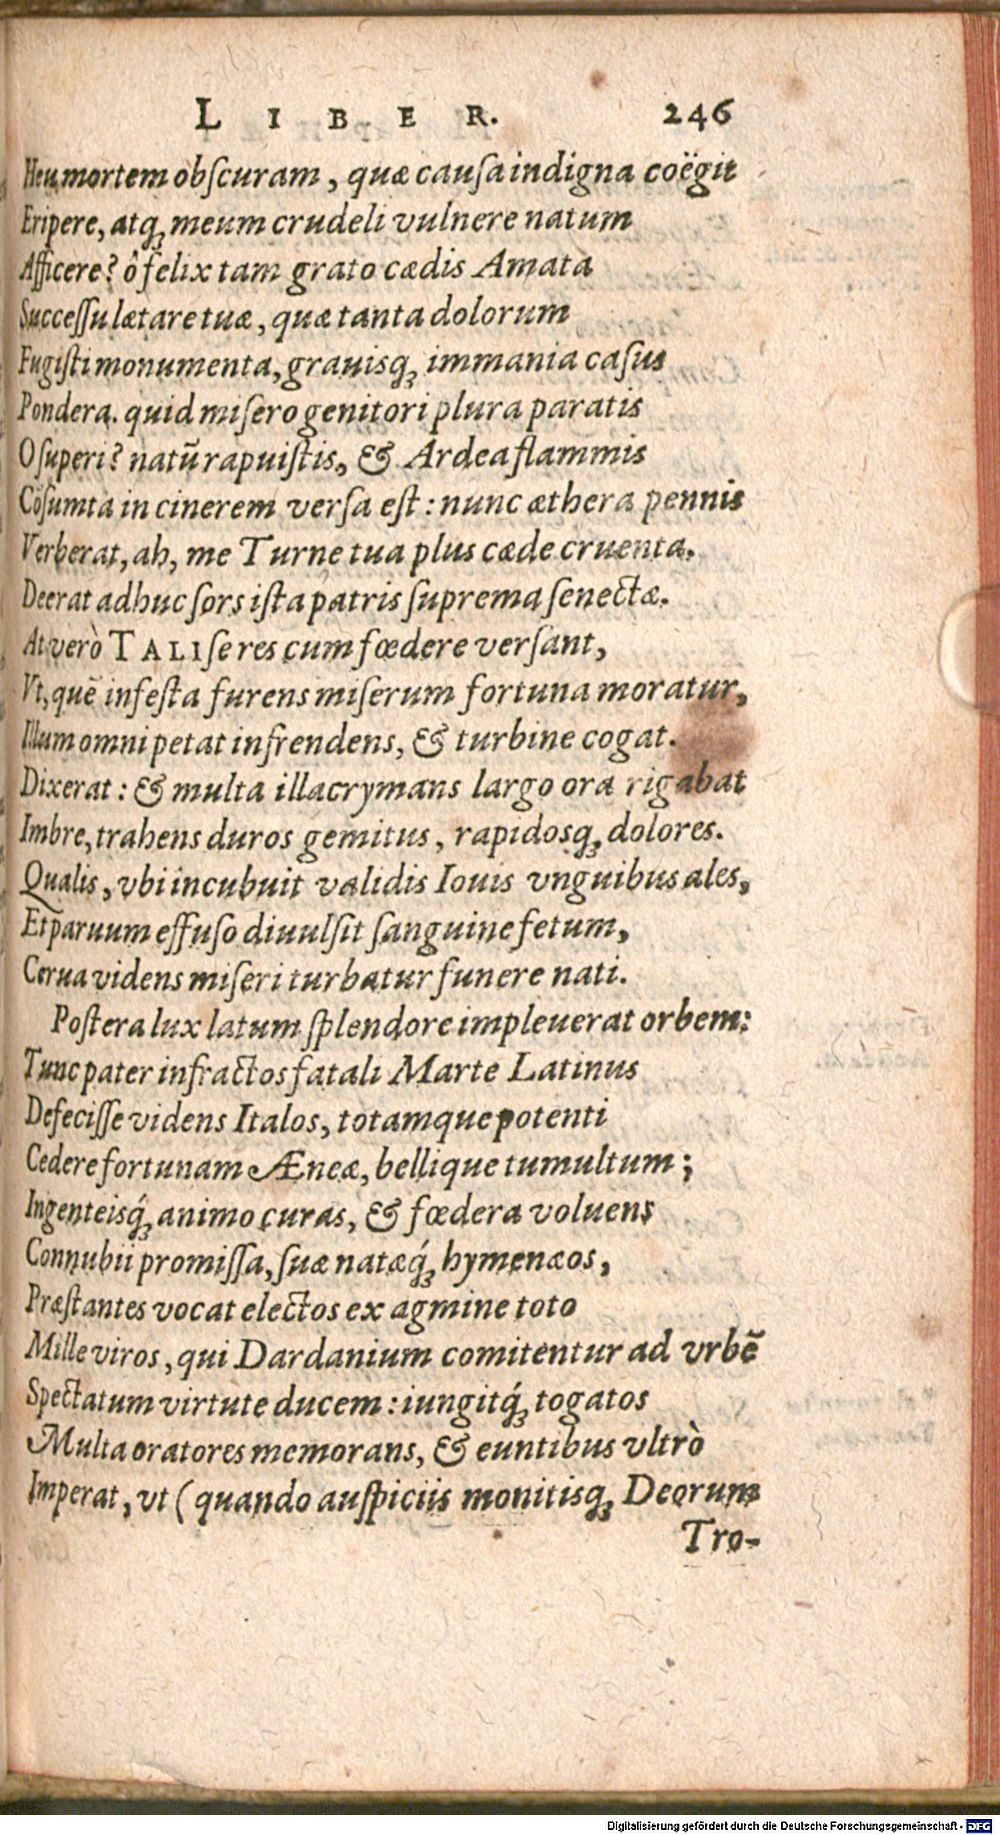 LIBER. 246
Heu mortem obſcuram, quæ cauſa indigna coëgit
Eripere, atq; meum crudeli vulnere natum
Afficere? ô felix tam grato cædis Amata
Succeſſu lætare tuæ, quæ tanta dolorum
Fugiſti monumenta, grauisq; immania caſus
Pondera. quid miſero genitori plura paratis
O ſuperi? natū rapuiſtis, & Ardea flammis
Cōſumta in cinerem verſa eſt: nunc æthera pennis
Verberat, ah, me Turne tua plus cæde cruenta.
Deerat adhuc ſors iſta patris ſuprema ſenectæ.
At verò TALI ſe res cum fœdere verſant,
Vt, quē infeſta furens miſerum fortuna moratur,
Illum omni petat infrendens, & turbine cogat.
Dixerat: & multa illacrymans largo ora rigabat
Imbre, trahens duros gemitus, rapidosq; dolores.
Qualis, vbi incubuit validis Iouis vnguibus ales,
Et paruum effuſo diuulſit ſanguine fetum,
Cerua videns miſeri turbatur funere nati.
Poſtera lux latum ſplendore impleuerat orbem:
Tunc pater infractos fatali Marte Latinus
Defeciſſe videns Italos, totamque potenti
Cedere fortunam Æneæ, bellique tumultum;
Ingenteisq́; animo curas, & fœdera voluens
Connubii promiſſa, ſuæ natæq́; hymenæos,
Præſtantes vocat electos ex agmine toto
Mille viros, qui Dardanium comitentur ad vrbē
Spectatum virtute ducem: iungitq́; togatos
Multa oratores memorans, & euntibus vltrò
Imperat, vt (quando auſpiciis monitisq; Deorum
Tro-
Digitalisierung gefördert durch die Deutsche Forschungsgemeinschaft - DFG